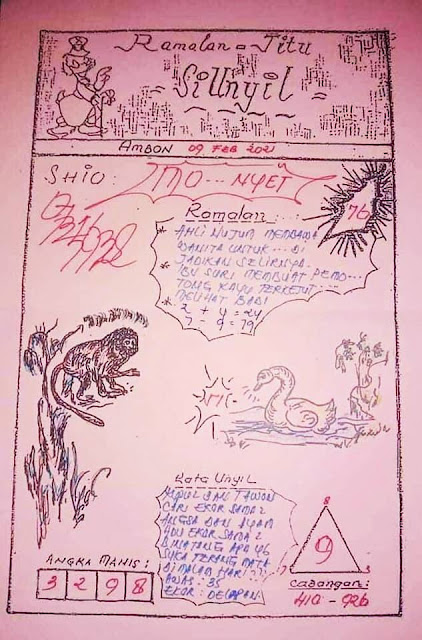 Ramalan = Jitu
Si Unyil
AMBON 09 FEB 2021
SHIO: MO... NYET
76
Ramalan....:
* AHLI NUJUM MEMBAWA
WANITA UNTUK... DI
JADIKAN SELIRNYA.
* IBU SURI MEMBUAT PEMO...
TONG KAYU TERKEJUT....
* MELIHAT BABI
2 + 4 = 24
7 - 9 = 79
Kata Unyil
KUMUL DAN TAWON
CARI EKOR SAMA2
ANGSA DAN AYAM
ADU EKOR SAMA2
BINATANG APA YG
SUKA TERANG MATA
DI MALAM HARI
AWAS: 35
EKOR: DELAPAN
ANGKA MANIS:
3 2 9 8
8
9
3
CADANGAN:
410 - 926